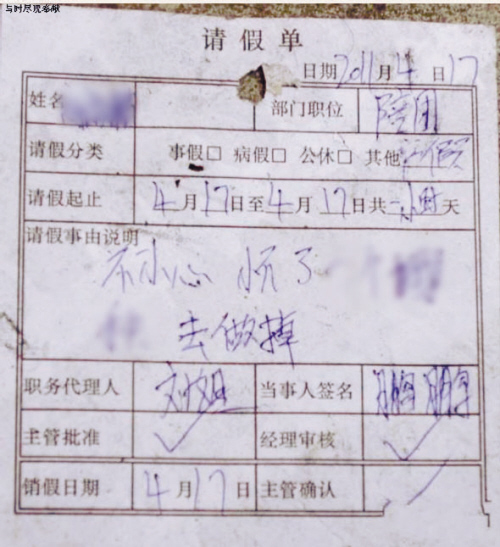 与时尽现奉献
请假单
日期 2011月4日17
姓名 部门职位 陪团
请假分类 事假□ 病假□ 公休□ 其他
请假起止 4月17日至4月17日共一小时天
请假事由说明
不小心怀了一个
去做掉
职务代理人 当事人签名
主管批准 ✓ 经理审核 ✓
销假日期 4月17日 主管确认 ✓